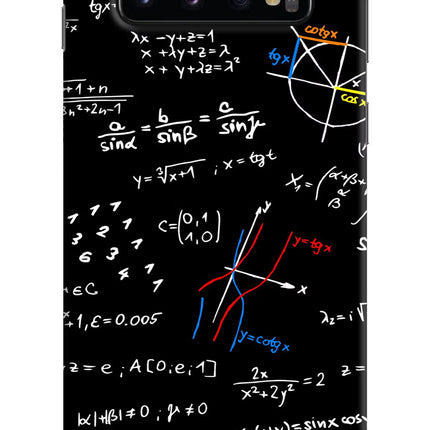 tgx
λx -y+z=1
x +λy+z=λ
x + y+λz=λ²
cotgx
tgx
x
cosx
+1+n
3n²+2n-1
a/sinα = b/sinβ = c/sinγ
y=∛x+1 ; x=tgt
1 1 1
1 2 1
6 3 1
4 1
C=(0,1
1,0)
y
y=tgx
x
y=cotgx
+εC
+1, ε=0.005
λ₂=i√
z=e ; A[0;e;1]
2x/x²+2y² =2
z=
|α|+|β|≠0 ; γ≠0
=sinx cos